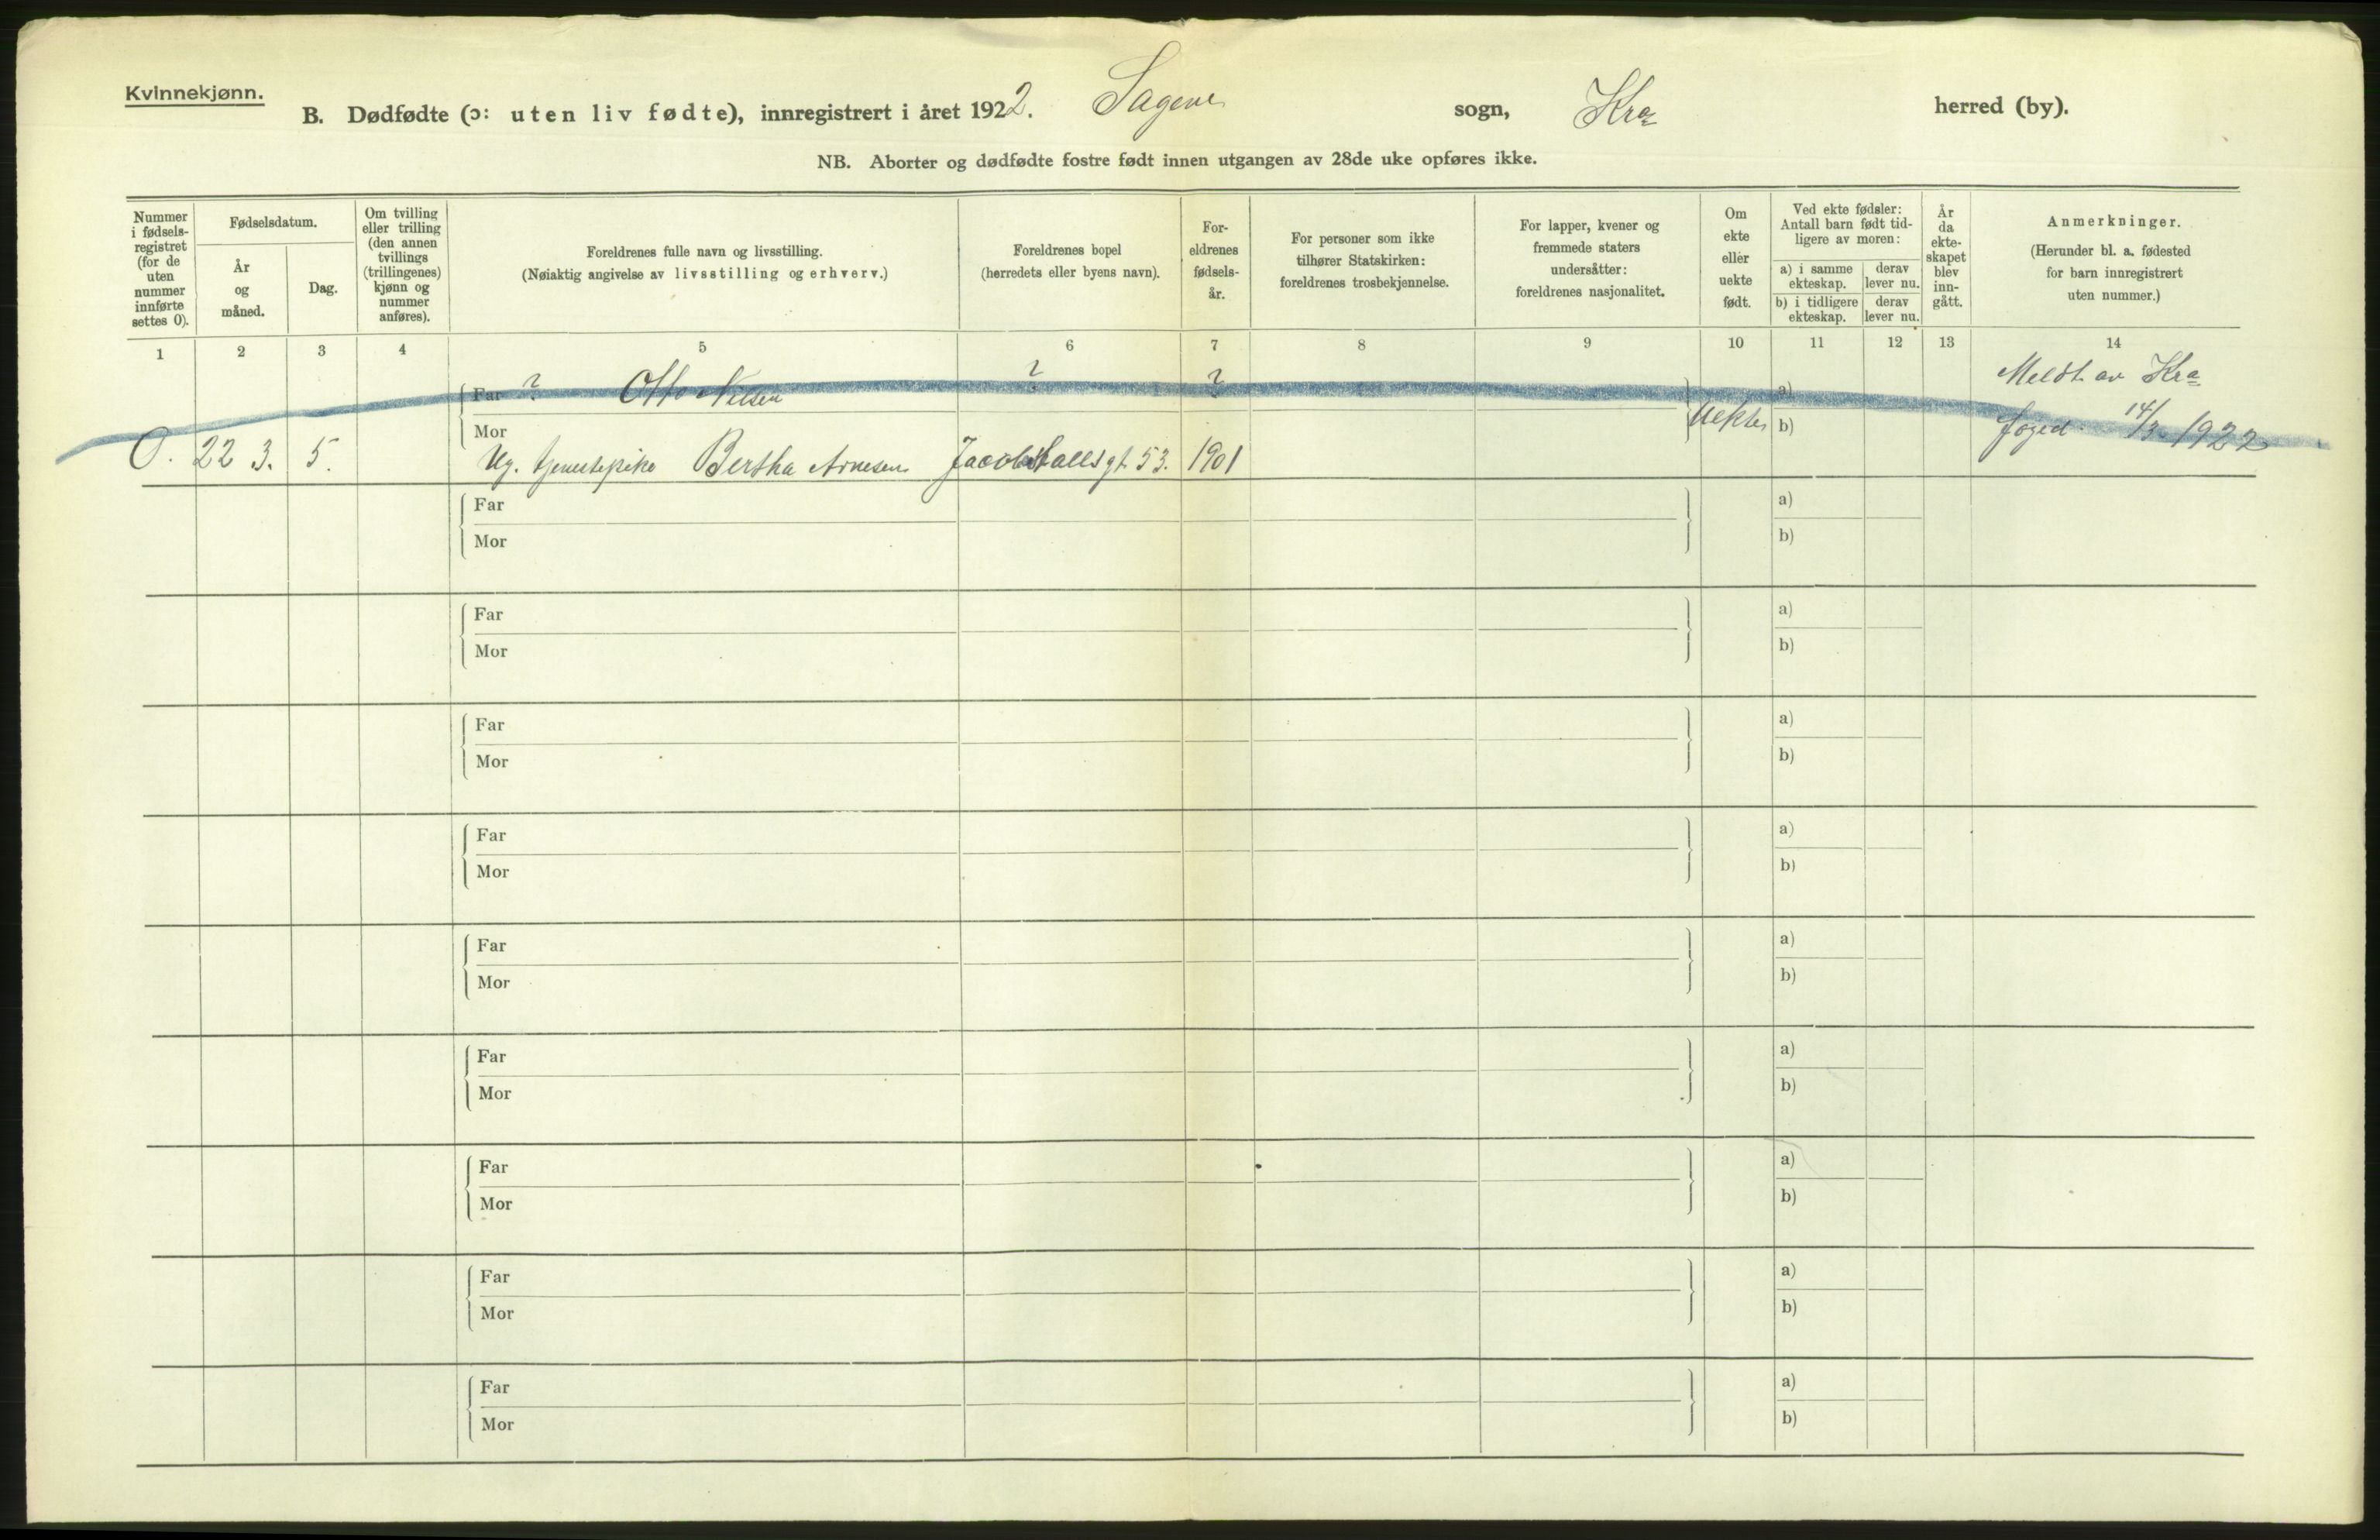 Kvinnekjønn.
B. Dødfødte (ɔ: uten liv fødte), innregistrert i året 1922. Sagene sogn, Kra herred (by).
NB. Aborter og dødfødte fostre født innen utgangen av 28de uke opføres ikke.
Nummer i fødsels-registret (for de uten nummer innførte settes 0).
Fødselsdatum.
År og måned.
Dag.
Om tvilling eller trilling (den annen tvillings (trillingenes) kjønn og nummer anføres).
Foreldrenes fulle navn og livsstilling.
(Nøiaktig angivelse av livsstilling og erhverv.)
Foreldrenes bopel
(herredets eller byens navn).
For-eldrenes fødsels-år.
For personer som ikke tilhører Statskirken: foreldrenes trosbekjennelse.
For lapper, kvener og fremmede staters undersåtter: foreldrenes nasjonalitet.
Om ekte eller uekte født.
Ved ekte fødsler: Antall barn født tid-ligere av moren:
a) i samme ekteskap.
derav lever nu.
b) i tidligere ekteskap.
derav lever nu.
År da ekte-skapet blev inn-gått.
Anmerkninger.
(Herunder bl. a. fødested for barn innregistrert uten nummer.)
1 2 3 4 5 6 7 8 9 10 11 12 13 14
Far ? Otto Nilsen ? ? a) Meldt av Kra
Mor Uekte b) foged 14/3 1922
0. 22 3. 5. Ug. tjenestepike Bertha Arnesen Jacob Halls gt. 53. 1901
Far a)
Mor b)
Far a)
Mor b)
Far a)
Mor b)
Far a)
Mor b)
Far a)
Mor b)
Far a)
Mor b)
Far a)
Mor b)
Far a)
Mor b)
Far a)
Mor b)